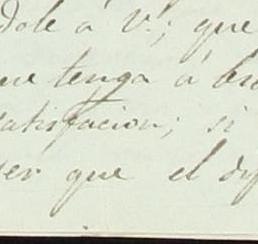 dole á V.; que
ue tenga á bi
satisfacion; si
ver que el dif